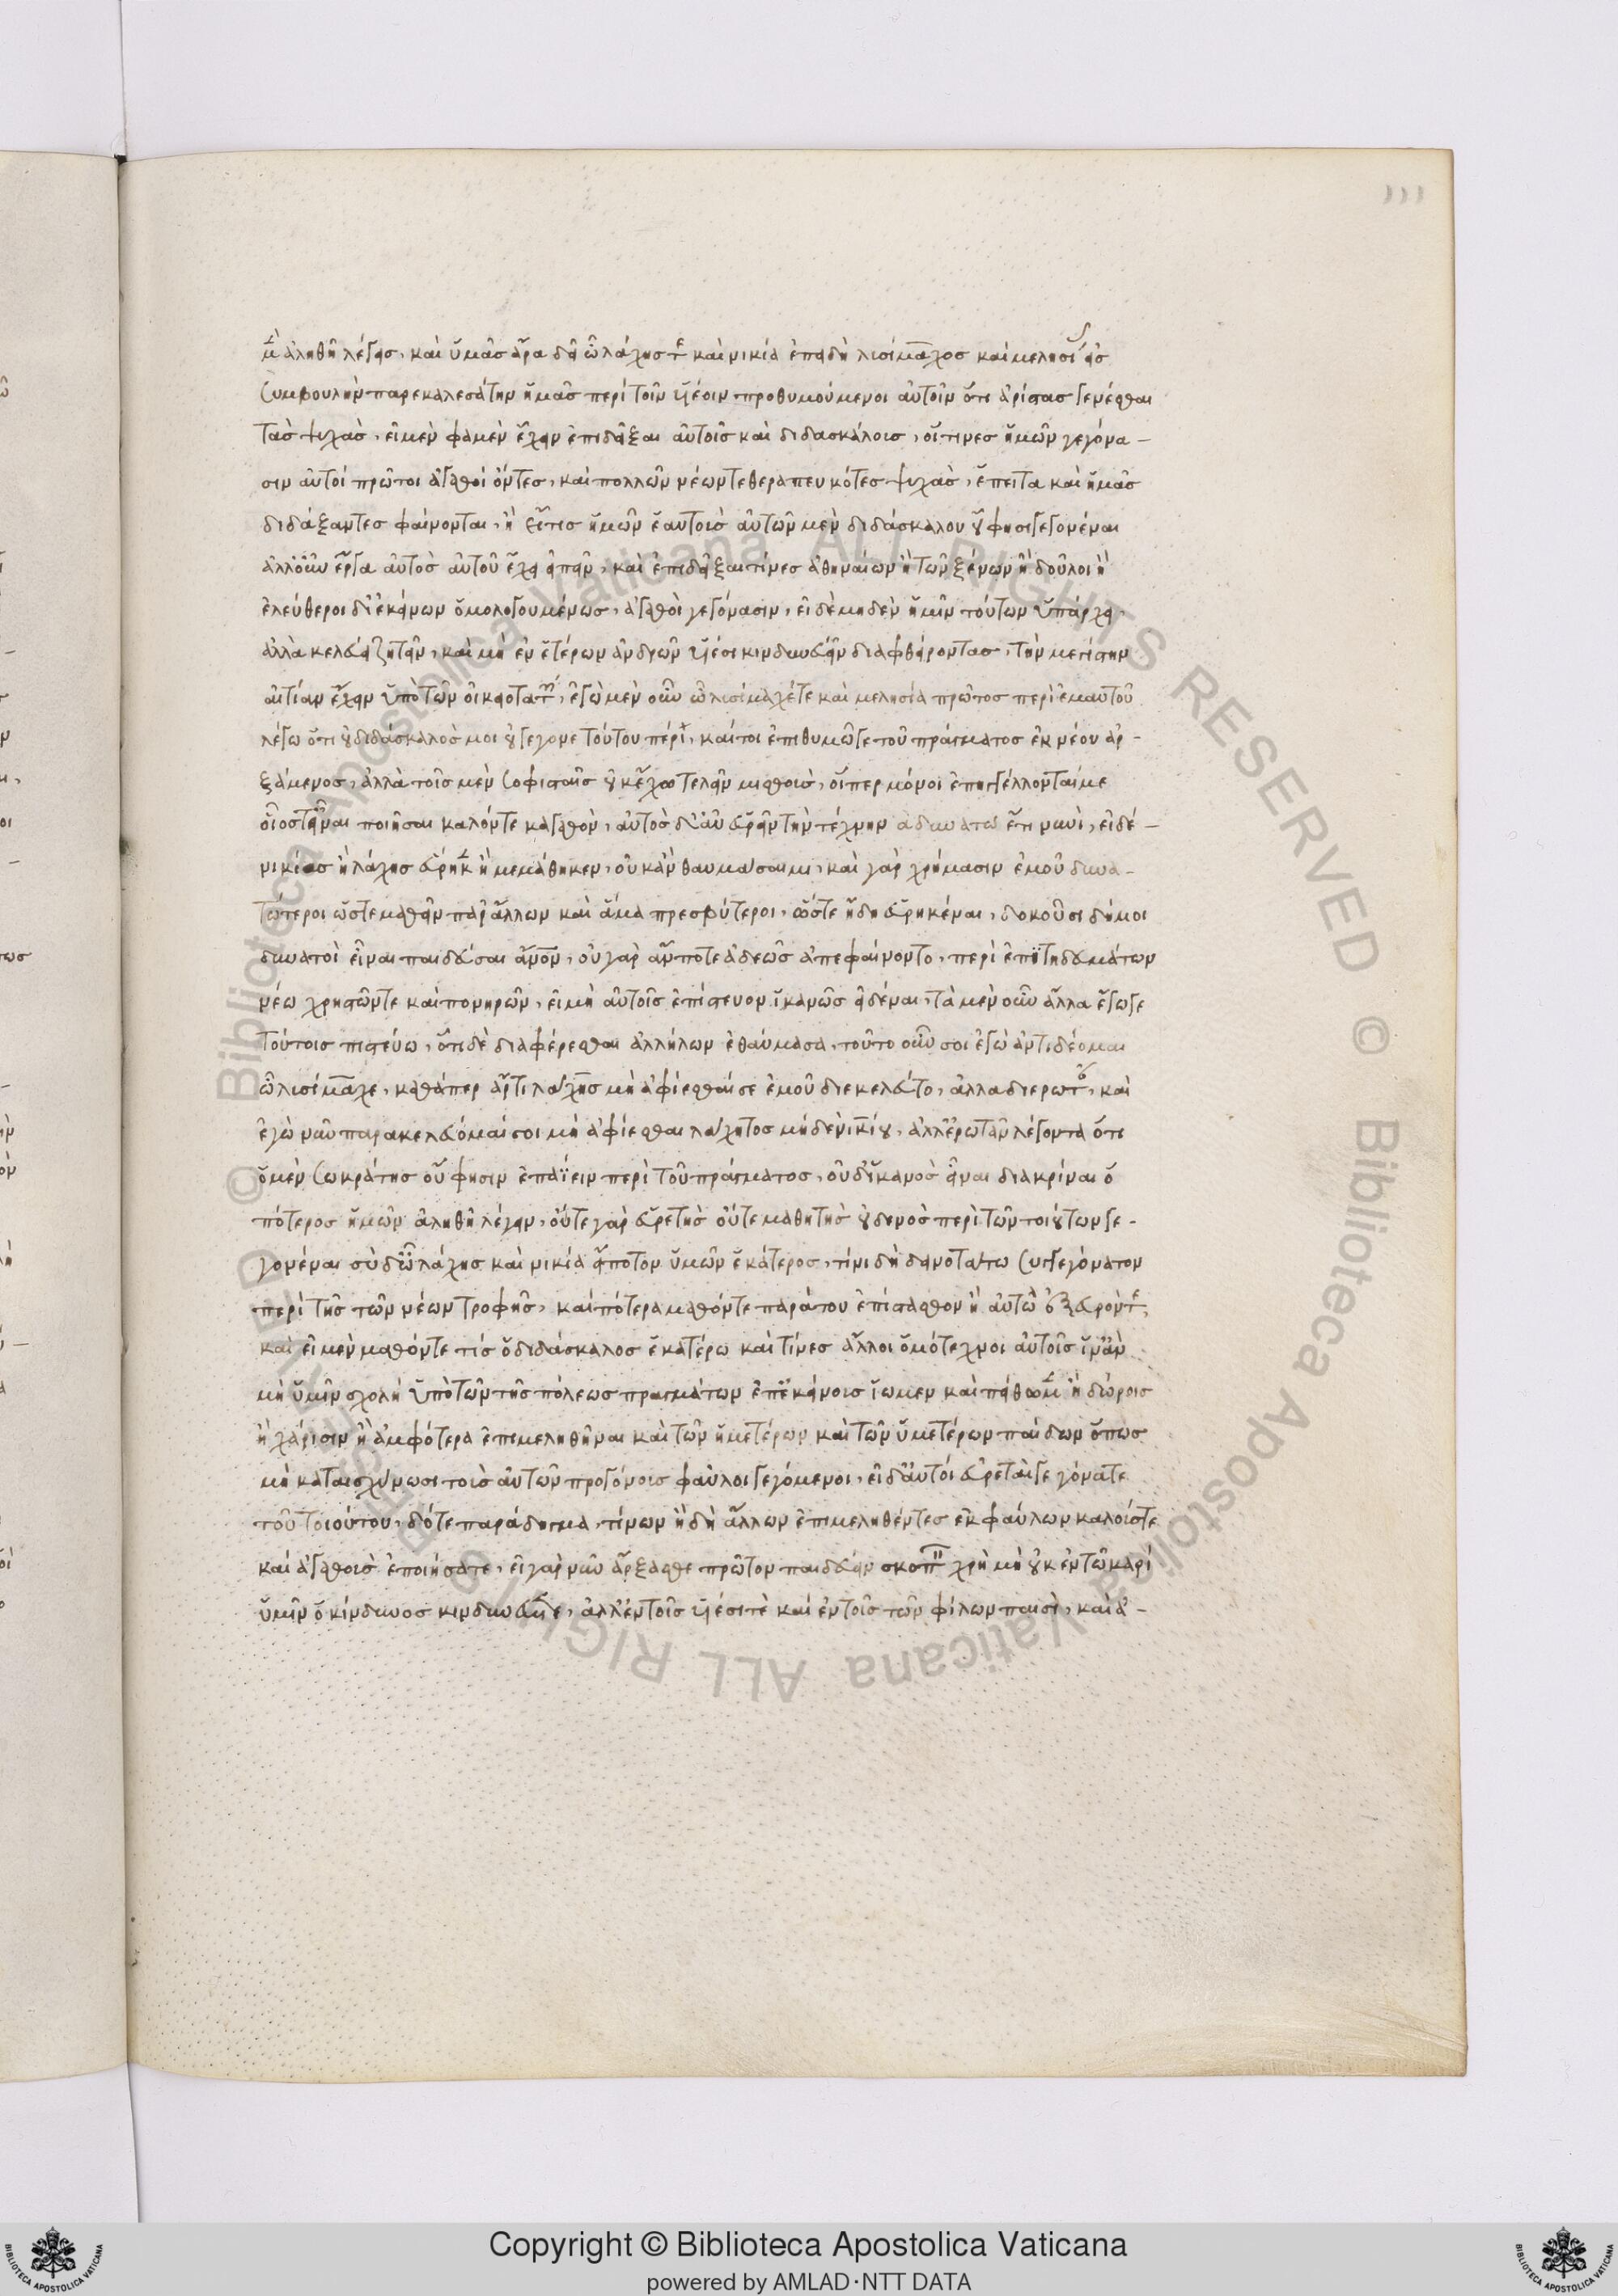 111
μὲν ἀληθῆ λέγεις, καὶ ὑμᾶς ἄρα δεῖ ὦ λάχης τὲ καὶ νικία ἐπειδὴ λισίμαχος καὶ μελησίας εἰς
συμβουλὴν παρεκαλεσάτην ἡμᾶς περὶ τοῖν υἱέοιν προθυμούμενοι αὐτοῖν ὅτι ἀρίστας γενέσθαι
τὰς ψυχὰς, εἰ μὲν φαμὲν ἔχειν ἐπιδεῖξαι αὐτοῖς καὶ διδασκάλοις, οἵτινες ἡμῶν γεγόνα-
σιν αὐτοί πρῶτοι ἀγαθοί ὄντες, καὶ πολλῶν νέων τεθεραπευκότες ψυχὰς, ἔπειτα καὶ ἡμᾶς
διδάξαντες φαίνονται, ἢ εἴ τις ἡμῶν ἑαυτοῖς αὐτῶν μὲν διδάσκαλον οὔ φησι γεγονέναι
ἀλλ' οὖν ἔργα αὐτὸς αὐτοῦ ἔχει εἰπεῖν, καὶ ἐπιδεῖξαι τίνες ἀθηναίων ἢ τῶν ξένων ἢ δοῦλοι ἢ
ἐλεύθεροι δι' ἐκείνων ὁμολογουμένως, ἀγαθοὶ γεγόνασιν, εἰ δὲ μηδὲν ἡμῖν τούτων ὑπάρχει,
ἀλλὰ κελεύει ζητεῖν, καὶ μὴ ἐν ἑτέρων ἀνδρῶν υἱέσι κινδυνεύειν διαφθείροντας, τὴν μεγίστην
αἰτίαν ἔχειν ὑπὸ τῶν οἰκειοτάτων, ἐγὼ μὲν οὖν ὦ λισίμαχέ τε καὶ μελησία πρῶτος περὶ ἐμαυτοῦ
λέγω ὅτι διδάσκαλός μοι οὐ γέγονε τούτου πέρι, καίτοι ἐπιθυμῶ γε τοῦ πράγματος ἐκ νέου ἀρ-
ξάμενος, ἀλλὰ τοῖς μὲν σοφισταῖς οὐκ ἔχω τελεῖν μισθοὺς, οἵπερ μόνοι ἐπηγγέλλονταί με
οἷος τ' εἶναι ποιῆσαι καλόν τε κἀγαθὸν, αὐτὸς δ' αὖ εὑρεῖν τὴν τέχνην ἀδυνατῶ ἔτι νυνὶ, εἰ δέ-
νικίας ἢ λάχης εὕρηκεν ἢ μεμάθηκεν, οὐκ ἂν θαυμάσαιμι, καὶ γὰρ χρήμασιν ἐμοῦ δυνα-
τώτεροι ὥστε μαθεῖν παρ' ἄλλων καὶ ἅμα πρεσβύτεροι, ὥστε ἤδη εὑρηκέναι, δοκοῦσι δή μοι
δυνατοὶ εἶναι παιδεῦσαι ἄνθρωπον, οὐ γὰρ ἄν ποτε ἀδεῶς ἀπεφαίνοντο, περὶ ἐπιτηδευμάτων
νέω χρηστῶν τε καὶ πονηρῶν, εἰ μὴ αὐτοῖς ἐπίστευον ἱκανῶς εἰδέναι, τὰ μὲν οὖν ἄλλα ἔγωγε
τούτοις πιστεύω, ὅτι δὲ διαφέρεσθαι ἀλλήλων ἐθαύμασα, τοῦτο οὖν σοι ἐγὼ ἀντιδέομαι
ὦ λισίμαχε, καθάπερ ἄρτι λάχης μὴ ἀφίεσθαί σε ἐμοῦ διεκελεύετο, ἀλλὰ διερωτᾶν, καὶ
ἐγὼ νῦν παρακελεύομαί σοι μὴ ἀφίεσθαι λάχητος μηδὲ νικίου, ἀλλ' ἐρωτᾶν λέγοντα ὅτι
ὁ μὲν σωκράτης οὔ φησιν ἐπαΐειν περὶ τοῦ πράγματος, οὐδ' ἱκανὸς εἶναι διακρίναι ὁ
πότερος ἡμῶν ἀληθῆ λέγειν, οὔτε γὰρ εὑρετὴς οὔτε μαθητὴς οὐδενὸς περὶ τῶν τοιούτων γε-
γονέναι σὺ δ' ὦ λάχης καὶ νικία εἴπετον ὑμῶν ἑκάτερος, τίνι δὴ δεινοτάτω συγγεγόνατον
περὶ τῆς τῶν νέων τροφῆς, καὶ πότερα μαθόντε παρά του ἐπίστασθον ἢ αὐτὼ ἐξευρόντε,
καὶ εἰ μὲν μαθόντε τίς ὁ διδάσκαλος ἑκατέρω καὶ τίνες ἄλλοι ὁμότεχνοι αὐτοῖς ἵν' ἂν
μὴ ὑμῖν σχολὴ ὑπὸ τῶν τῆς πόλεως πραγμάτων ἐπ' ἐκείνοις ἴωμεν καὶ πείθωμεν ἢ δώροις
ἢ χάρισιν ἢ ἀμφότερα ἐπιμεληθῆναι καὶ τῶν ἡμετέρων καὶ τῶν ὑμετέρων παίδων ὅπως
μὴ καταισχύνωσι τοὺς αὑτῶν προγόνους φαῦλοι γεγόμενοι, εἰ δ' αὐτοὶ εὑρεταὶ γεγόνατε
τοῦ τοιούτου, δότε παράδειγμα, τίνων ἤδη ἄλλων ἐπιμεληθέντες ἐκ φαύλων καλούς τε
καὶ ἀγαθοὺς ἐποιήσατε, εἰ γὰρ νῦν ἄρξασθε πρῶτον παιδεύειν σκοπεῖν χρὴ μὴ οὐκ ἐν τῶ καρὶ
ὑμῖν ὁ κίνδυνος κινδυνεύηται, ἀλλ' ἐν τοῖς υἱέσι τε καὶ ἐν τοῖς τῶν φίλων παισὶ, καὶ ἀ-
Copyright © Biblioteca Apostolica Vaticana
powered by AMLAD·NTT DATA